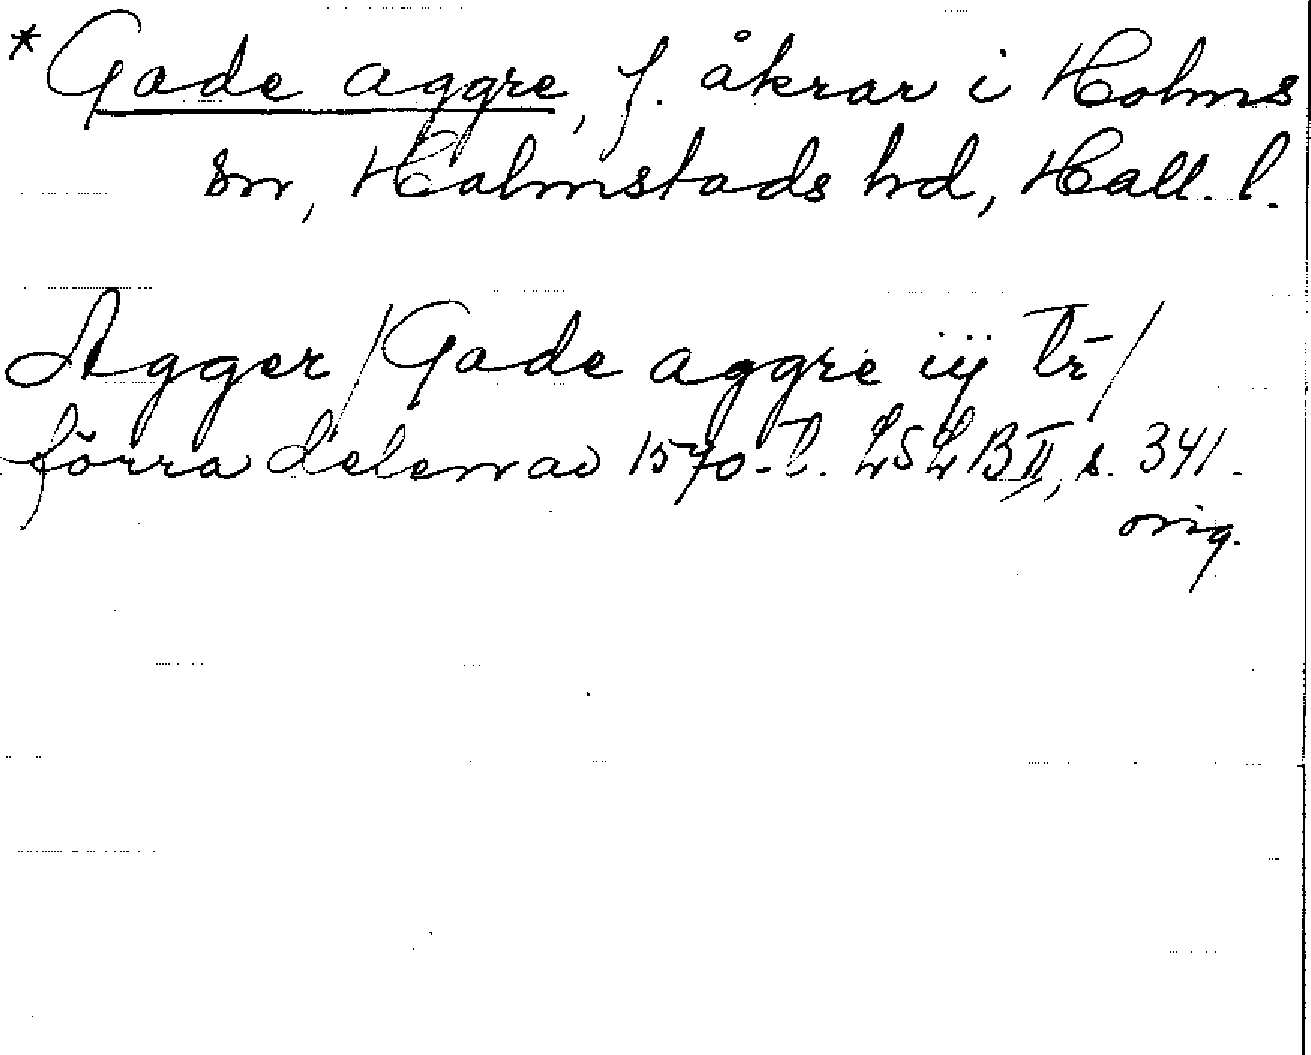 * Gade aggre, f. åkrar i Holms
sn, Halmstads hd, Hall. l.
Agger / Gade aggre iij tr /
förra delen av 1570-t. LSLB II, s. 341.
orig.